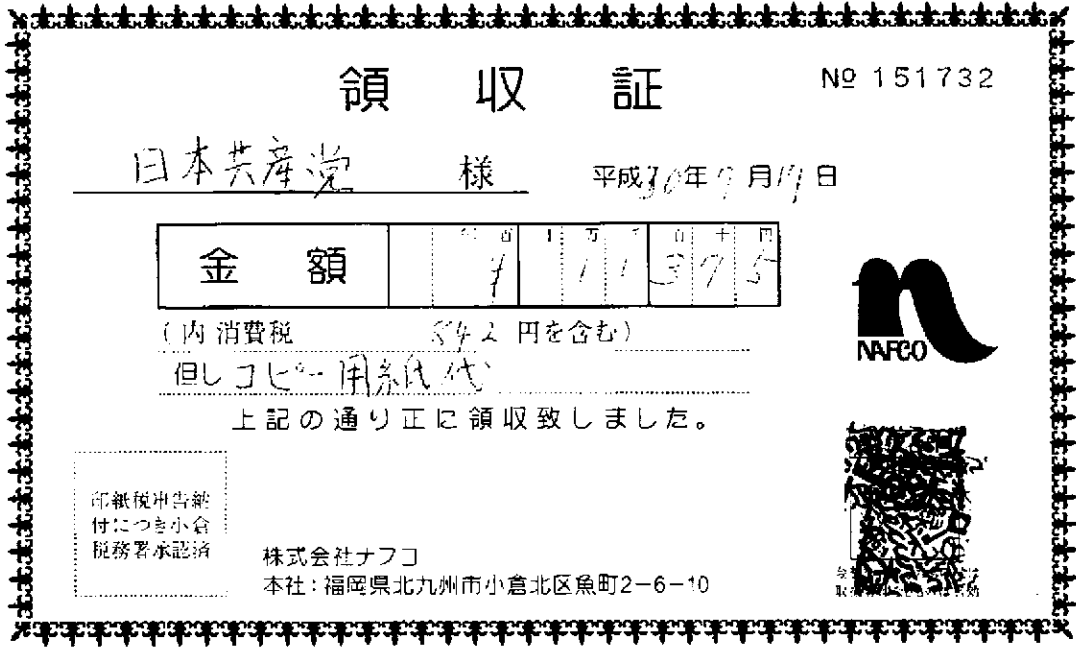 領収証
№ 151732
日本共産党 様
平成30年9月19日
金額
百 十 万 千 百 十 円
¥11375
(内消費税 842 円を含む)
但しコピー用紙代
上記の通り正に領収致しました。
NAFCO
印紙税申告納
付につき小倉
税務署承認済
株式会社ナフコ
本社：福岡県北九州市小倉北区魚町2-6-10